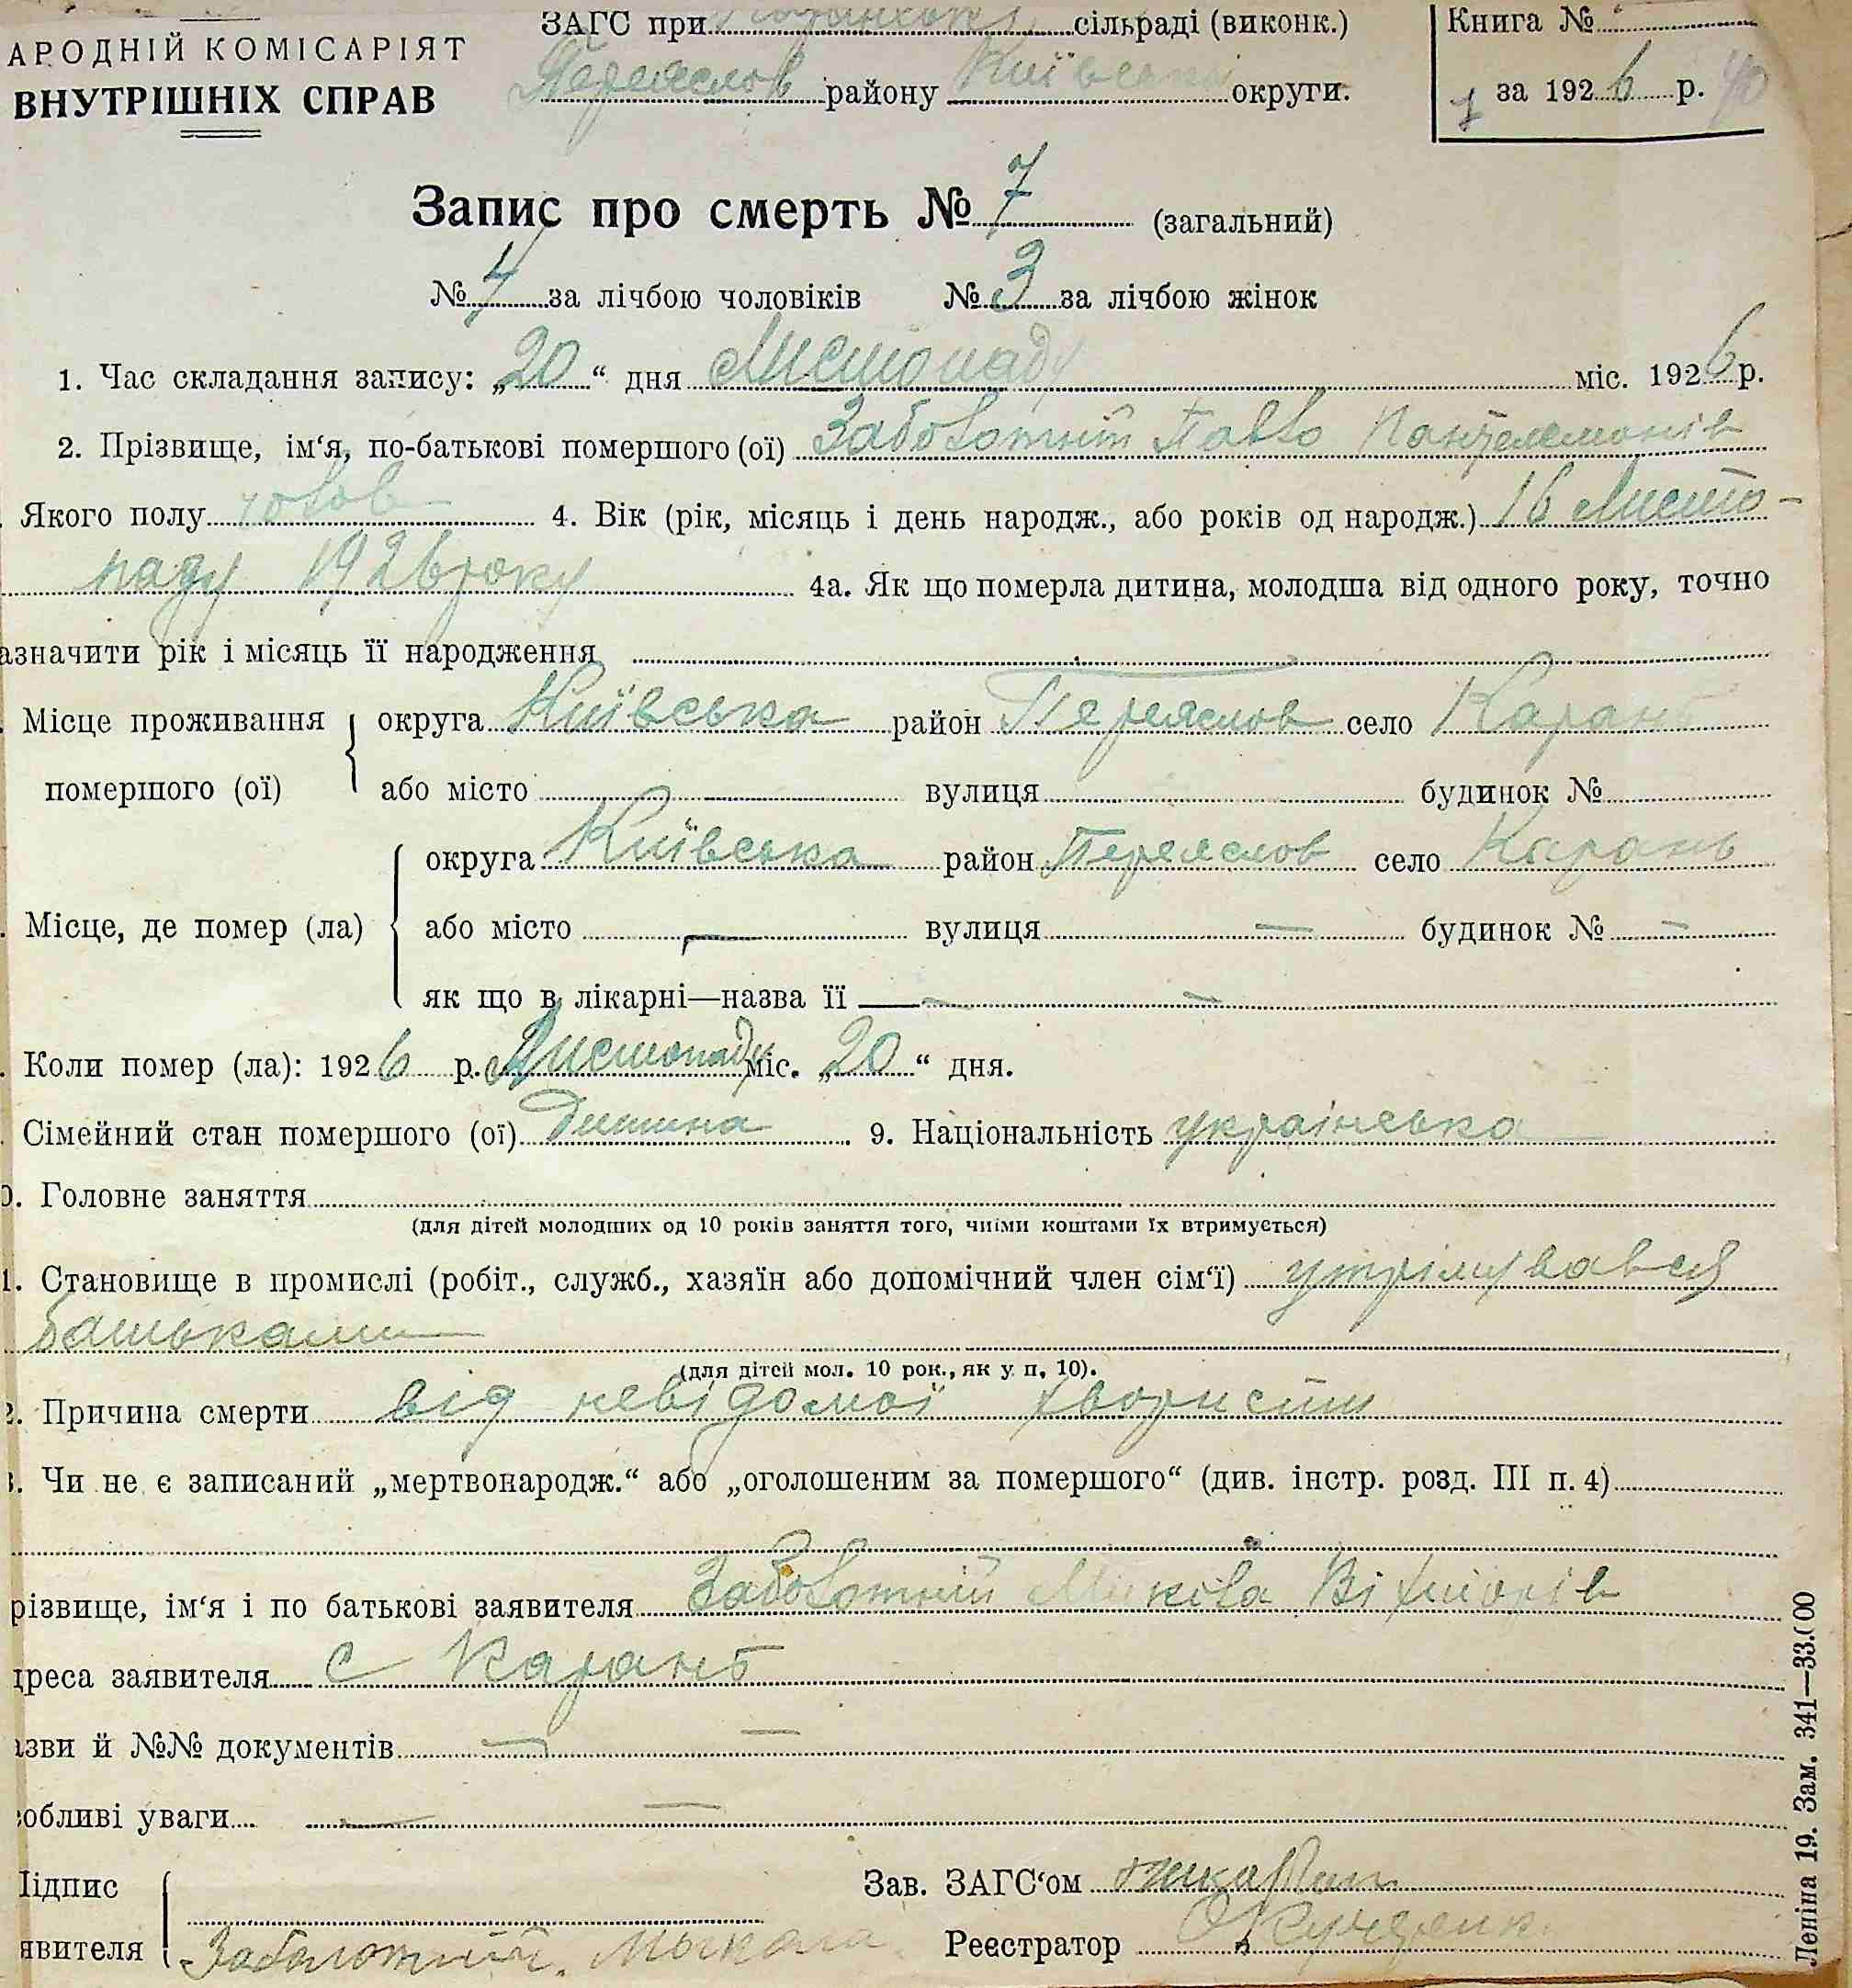 АРОДНІЙ КОМІСАРІЯТ
ВНУТРІШНІХ СПРАВ
ЗАГС при сільраді (виконк.)
Переяслов району Київської округи.
Книга №
за 1926 р. 40
Запис про смерть № 7 (загальний)
№ 4 за лічбою чоловіків № 3 за лічбою жінок
1. Час складання запису: „20“ дня Листопаду міс. 1926 р.
2. Прізвище, ім‘я, по-батькові помершого (ої) Заболотний Павло Пантелемонів
. Якого полу чолов 4. Вік (рік, місяць і день народж., або років од народж.) 16 Листо-
паду 1926 року 4а. Як що померла дитина, молодша від одного року, точно
азначити рік і місяць її народження
. Місце проживання округа Київська район Переяслов село Карань
помершого (ої) або місто — вулиця будинок №
округа Київська район Переяслов село Карань
. Місце, де помер (ла) або місто — вулиця — будинок № —
як що в лікарні—назва її —
. Коли помер (ла): 1926 р. Листопаду міс. „20“ дня.
. Сімейний стан помершого (ої) Дитина 9. Національність українська
0. Головне заняття
(для дітей молодших од 10 років заняття того, чиїми коштами їх втримується)
1. Становище в промислі (робіт., служб., хазяїн або допомічний член сім‘ї) утрімувався
батьками
(для дітей мол. 10 рок., як у п. 10).
2. Причина смерти від невідомої хвористи
3. Чи не є записаний „мертвонародж.“ або „оголошеним за помершого“ (див. інстр. розд. III п. 4)
різвище, ім‘я і по батькові заявителя Заболотний Микола
дреса заявителя с Карань
азви й №№ документів —
собливі уваги —
Підпис Зав. ЗАГС‘ом
явителя Заболотний. Мыкола Реєстратор
Леніна 19. Зам. 341—33.000